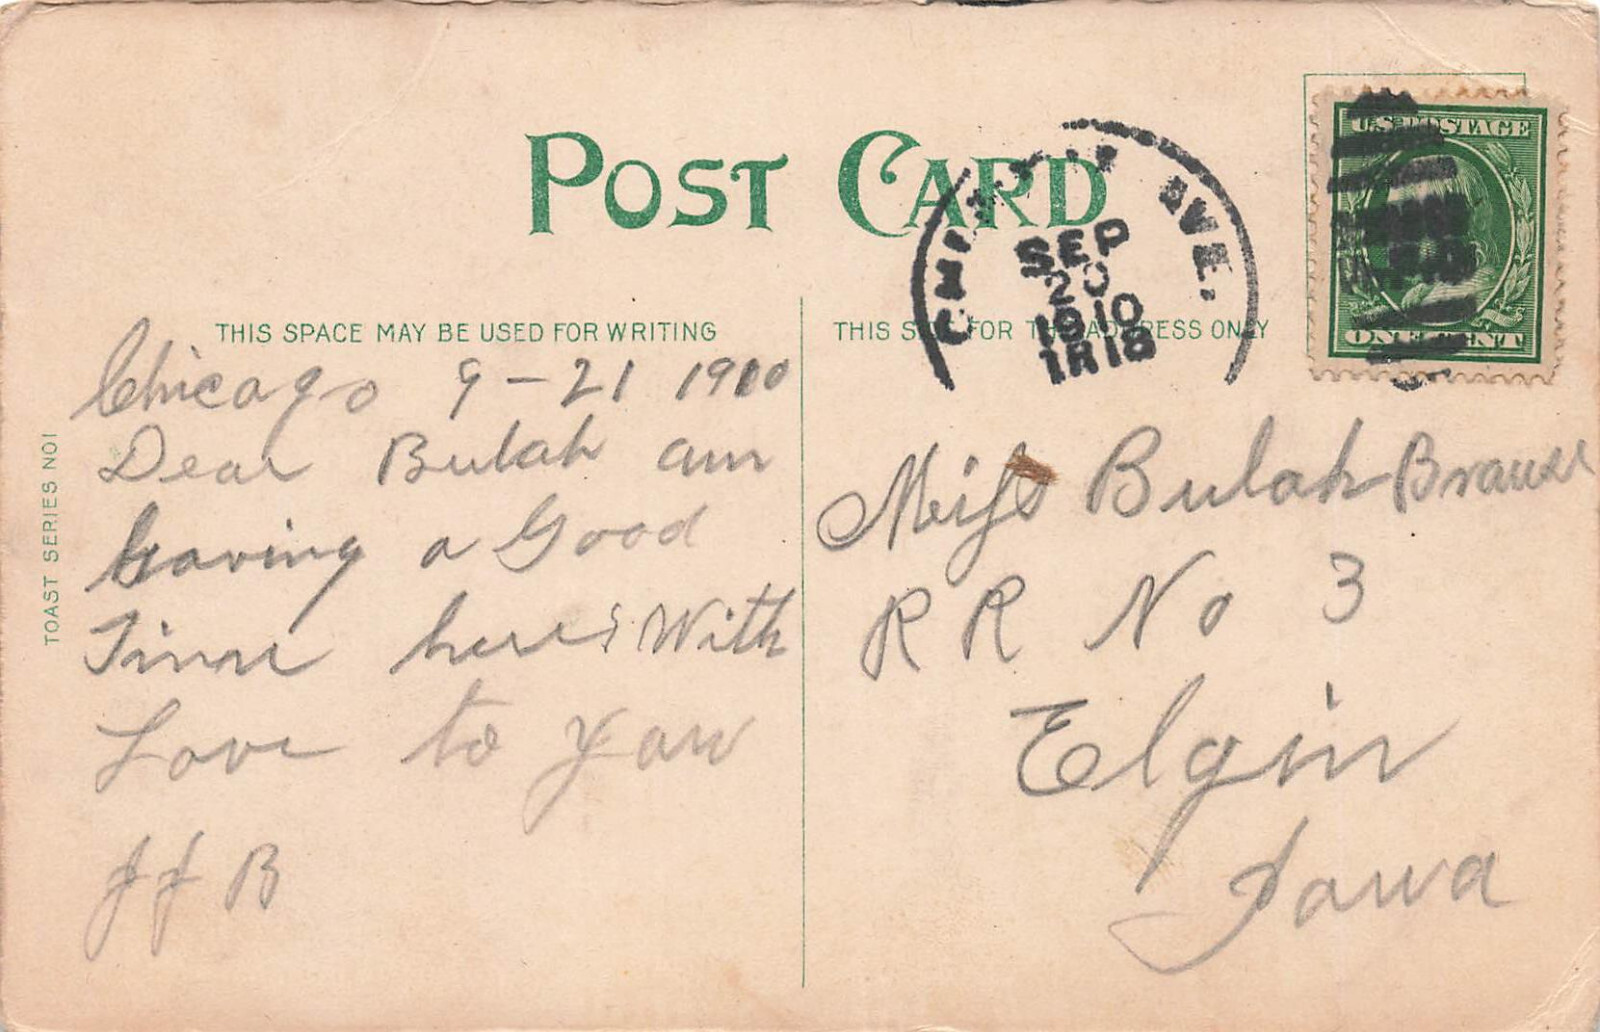 POST CARD
THIS SPACE MAY BE USED FOR WRITING
Chicago 9-21 1910
Dear Bulah am
having a Good
Time here & With
Love to you
J J B
TOAST SERIES NO1
AVE.
SEP
20
1910
U.S. POSTAGE
ONE CENT
THIS SPACE FOR THE ADDRESS ONLY
Miss Bulah
R R No 3
Elgin
Iowa